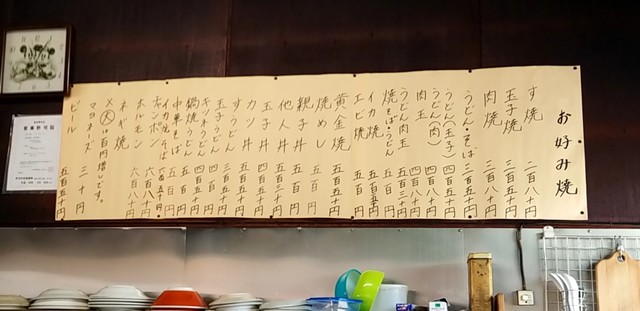 お好み焼
す焼 二百八十円
玉子焼 三百五十円
肉焼 三百八十円
うどん・そば 三百五十円
うどん(玉子) 四百八十円
うどん(肉) 四百八十円
肉玉 四百八十円
うどん肉玉 五百五十円
焼そば・うどん 五百円
イカ焼 五百五十円
エビ焼 五百円
黄金焼 五百五十円
焼めし 五百円
親子丼 五百円
他人丼 五百三十円
玉子丼 四百五十円
カツ丼 五百五十円
すうどん 三百五十円
玉子うどん 四百円
キツネうどん 四百円
鍋焼うどん 四百五十円
中華そば 五百円
イカ焼そば 五百五十円
チャンポン 六百五十円
ホルモン 六百八十円
ネギ焼 六百八十円
×大は百円増しです。
マヨネーズ 三十円
ビール 五百五十円